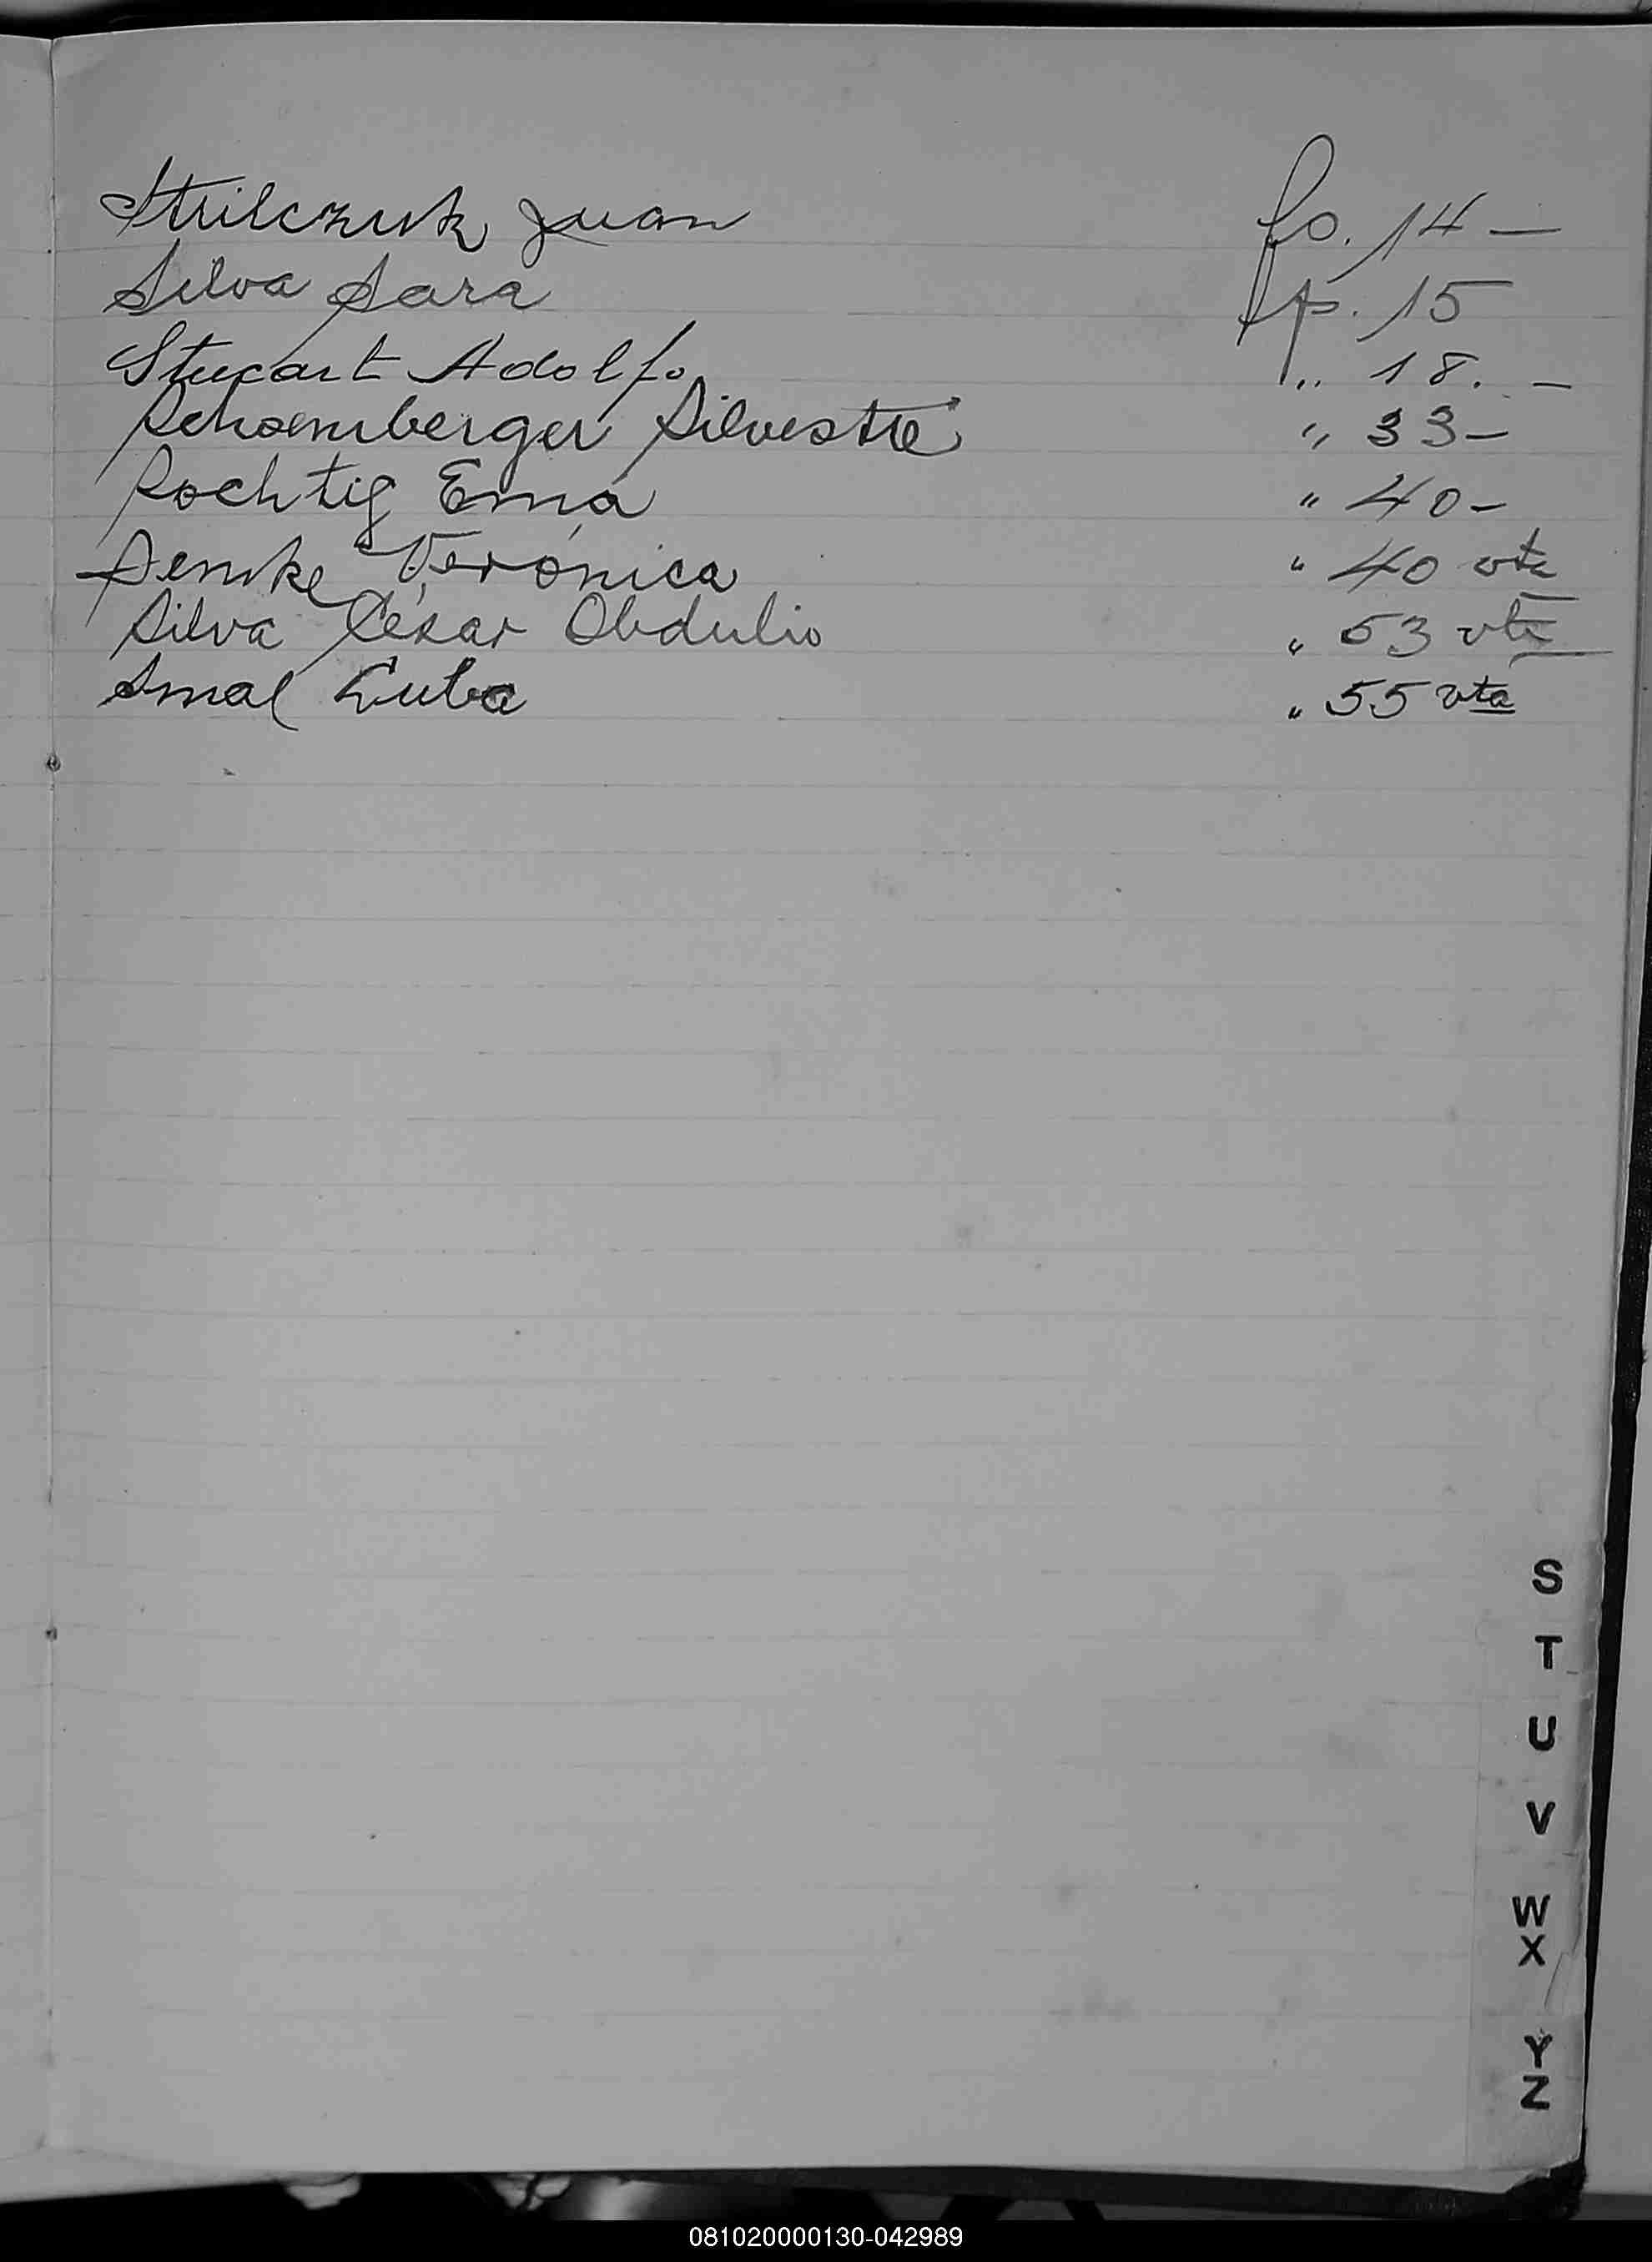 Strilczuk Juan fo. 14 —
Silva Sara fo. 15
Stucart Adolfo „ 18. —
Schoemberger Silvestre „ 33 —
Sochtig Ema „ 40 —
Semke Verónica „ 40 vta
Silva César Obdulio „ 53 vta
Smal Luba „ 55 vta
S
T
U
V
W
X
Y
Z
081020000130-042989